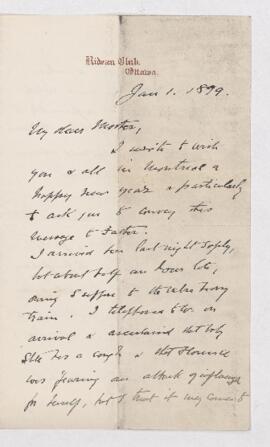 Rideau Club,
Ottawa.
Jan 1. 1899.
My dear
I write to wish
you & all in Montreal a
happy new year & particularly
to ask you to convey this
message to
I arrived here last night safely,
but about half an hour late,
owing
train. I telephoned on
arrival & ascertained that Lady
has a cough & that Florence
was fearing an attack of influenza
for herself, but I trust it may come to